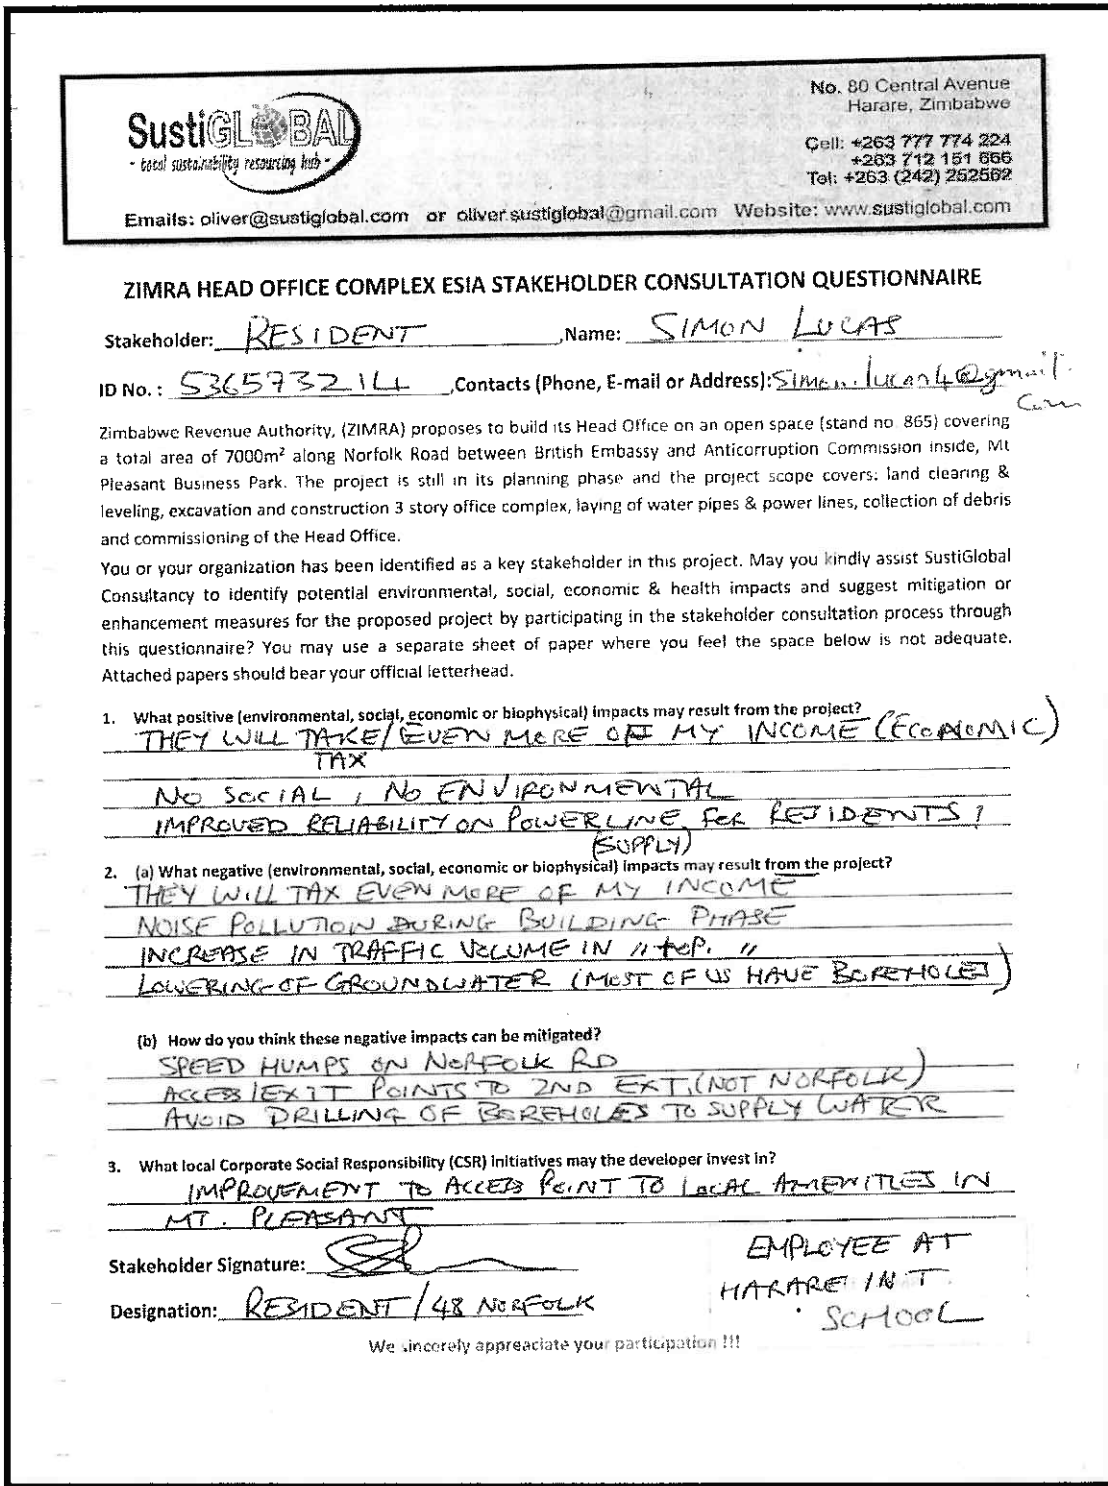 SustiGLOBAL
- total sustainability resourcing hub -
No. 80 Central Avenue
Harare, Zimbabwe
Cell: +263 777 774 224
+263 712 151 666
Tel: +263 (242) 252562
Emails: oliver@sustiglobal.com or oliver.sustiglobal@gmail.com Website: www.sustiglobal.com
ZIMRA HEAD OFFICE COMPLEX ESIA STAKEHOLDER CONSULTATION QUESTIONNAIRE
Stakeholder: RESIDENT ,Name: SIMON LUCAS
ID No. : 536573214 ,Contacts (Phone, E-mail or Address):
Zimbabwe Revenue Authority, (ZIMRA) proposes to build its Head Office on an open space (stand no. 865) covering
a total area of 7000m² along Norfolk Road between British Embassy and Anticorruption Commission inside, Mt
Pleasant Business Park. The project is still in its planning phase and the project scope covers: land clearing &
leveling, excavation and construction 3 story office complex, laying of water pipes & power lines, collection of debris
and commissioning of the Head Office.
You or your organization has been identified as a key stakeholder in this project. May you kindly assist SustiGlobal
Consultancy to identify potential environmental, social, economic & health impacts and suggest mitigation or
enhancement measures for the proposed project by participating in the stakeholder consultation process through
this questionnaire? You may use a separate sheet of paper where you feel the space below is not adequate.
Attached papers should bear your official letterhead.
1. What positive (environmental, social, economic or biophysical) impacts may result from the project?
THEY WILL TAKE/ EVEN MORE OF MY INCOME (ECONOMIC)
TAX
NO SOCIAL, NO ENVIRONMENTAL
IMPROVED RELIABILITY ON POWERLINE FOR RESIDENTS!
(SUPPLY)
2. (a) What negative (environmental, social, economic or biophysical) impacts may result from the project?
THEY WILL TAX EVEN MORE OF MY INCOME
NOISE POLLUTION DURING BUILDING PHASE
INCREASE IN TRAFFIC VOLUME IN " "
LOWERING OF GROUNDWATER (MOST OF US HAVE BOREHOLES)
(b) How do you think these negative impacts can be mitigated?
SPEED HUMPS ON NORFOLK RD
ACCESS/EXIT POINTS TO 2ND EXT, (NOT NORFOLK)
AVOID DRILLING OF BOREHOLES TO SUPPLY WATER
3. What local Corporate Social Responsibility (CSR) initiatives may the developer invest in?
IMPROVEMENT TO ACCESS POINT TO LOCAL AMENITIES IN
MT. PLEASANT
Stakeholder Signature:
Designation: RESIDENT / 48 NORFOLK
EMPLOYEE AT
HARARE INT
SCHOOL
We sincerely appreaciate your participation !!!